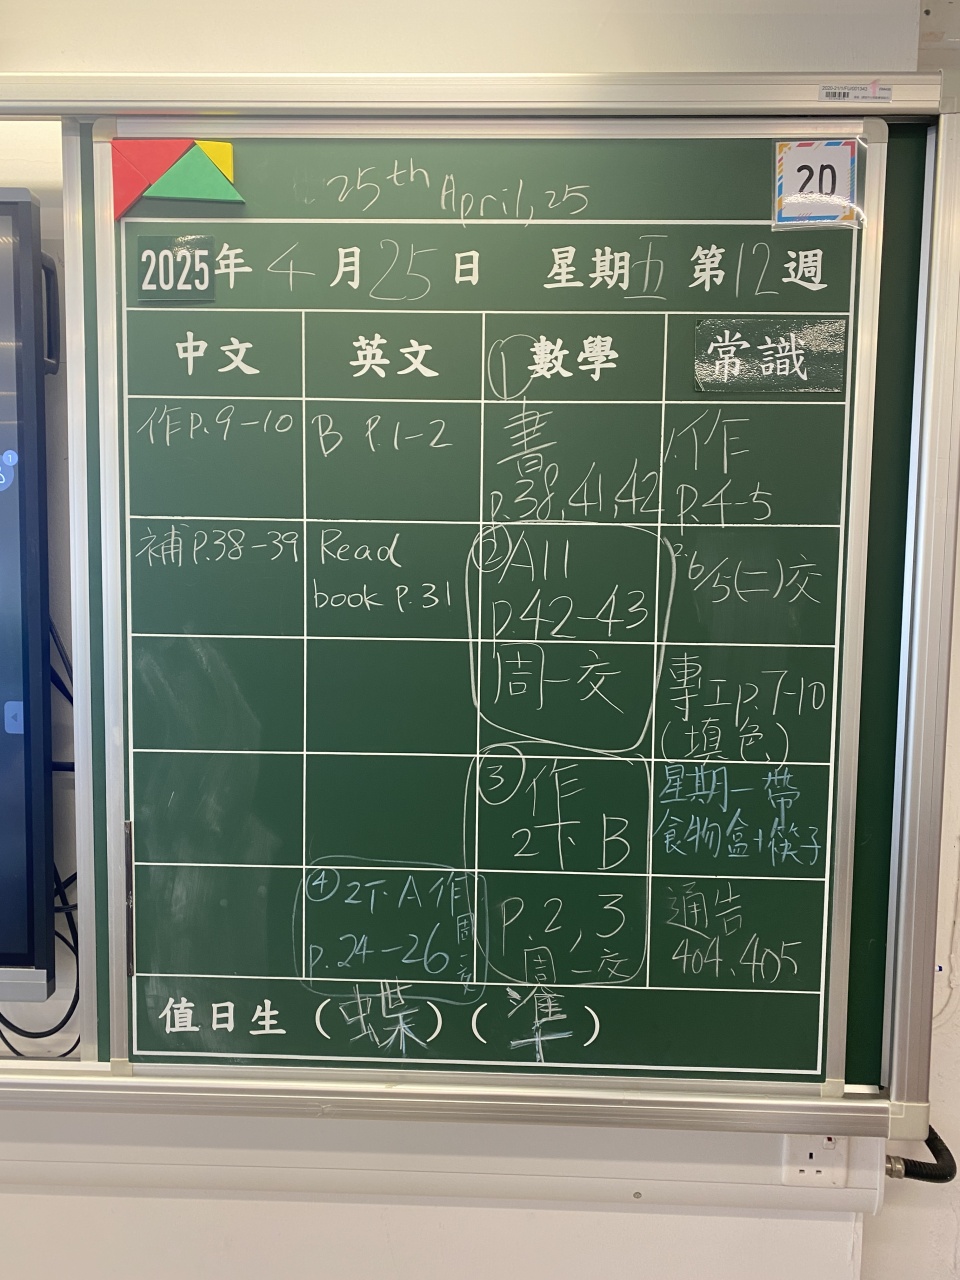 25th April, 25
20
2025年 4 月 25 日 星期五 第12週
中文 英文 ①數學 常識
作 P.9-10
補 P.38-39
B P.1-2
Read
book P.31
書
p.38,41,42
② A11
p.42-43
周一交
③ 作
2下 B
P.2,3
周一交
④ 2下A作
p.24-26
周一交
1.作
P.4-5
2. 6/5(二)交
專工p.7-10
(填色)
星期一帶
食物盒+筷子
通告
404、405
值日生 (蝶) (準)